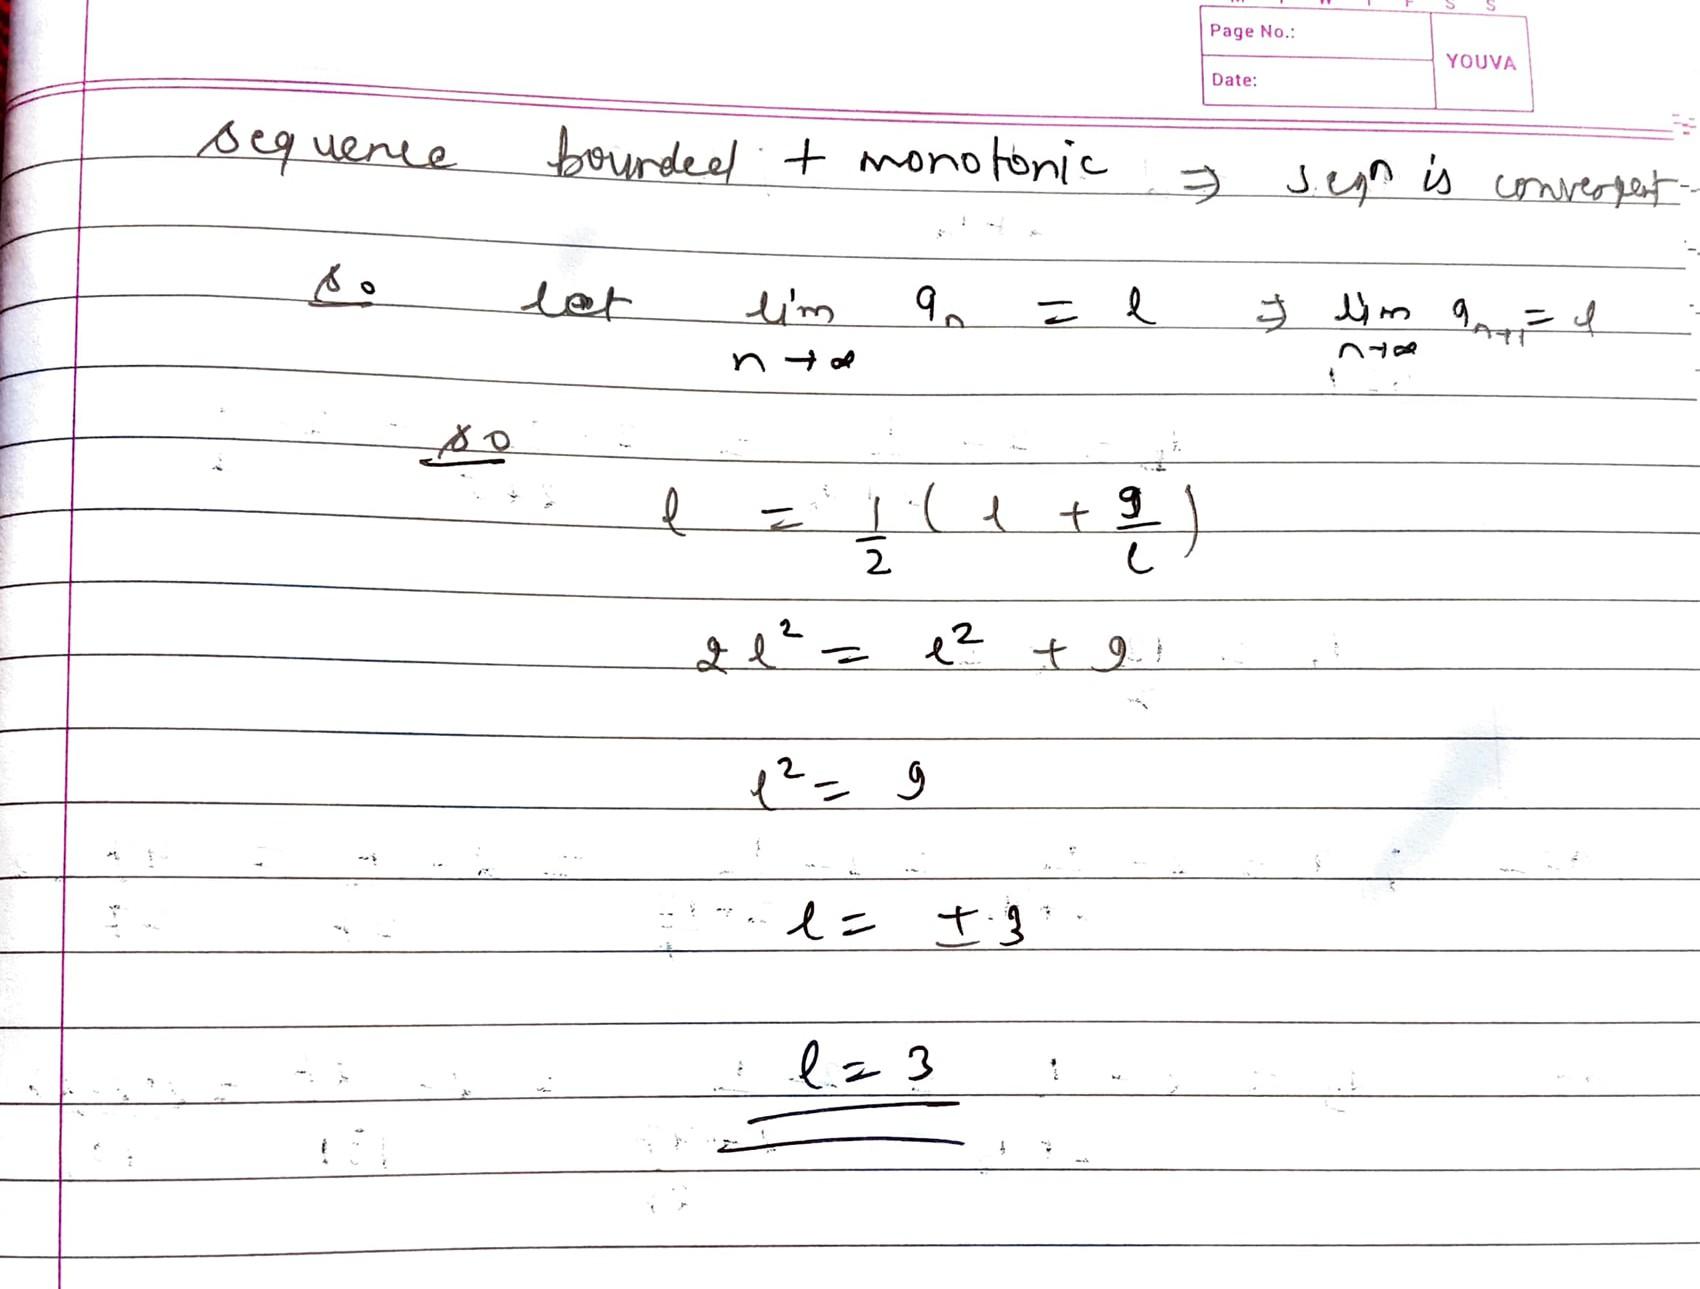 Page No.:
YOUVA
Date:
sequence bounded + monotonic ⇒ seqn is convergent
so let lim n→∞ an = l ⇒ lim n→∞ an+1 = l
so
l = 1/2 ( l + 9/l )
2l² = l² + 9
l² = 9
l = ± 3
l = 3